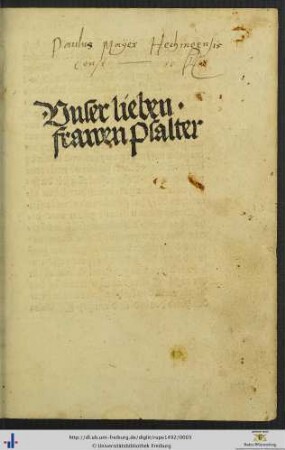 Paulus Mayer Hechingensis
Const
Vnser lieben
frawen Psalter
http://dl.ub.uni-freiburg.de/diglit/rupe1492/0003
© Universitätsbibliothek Freiburg